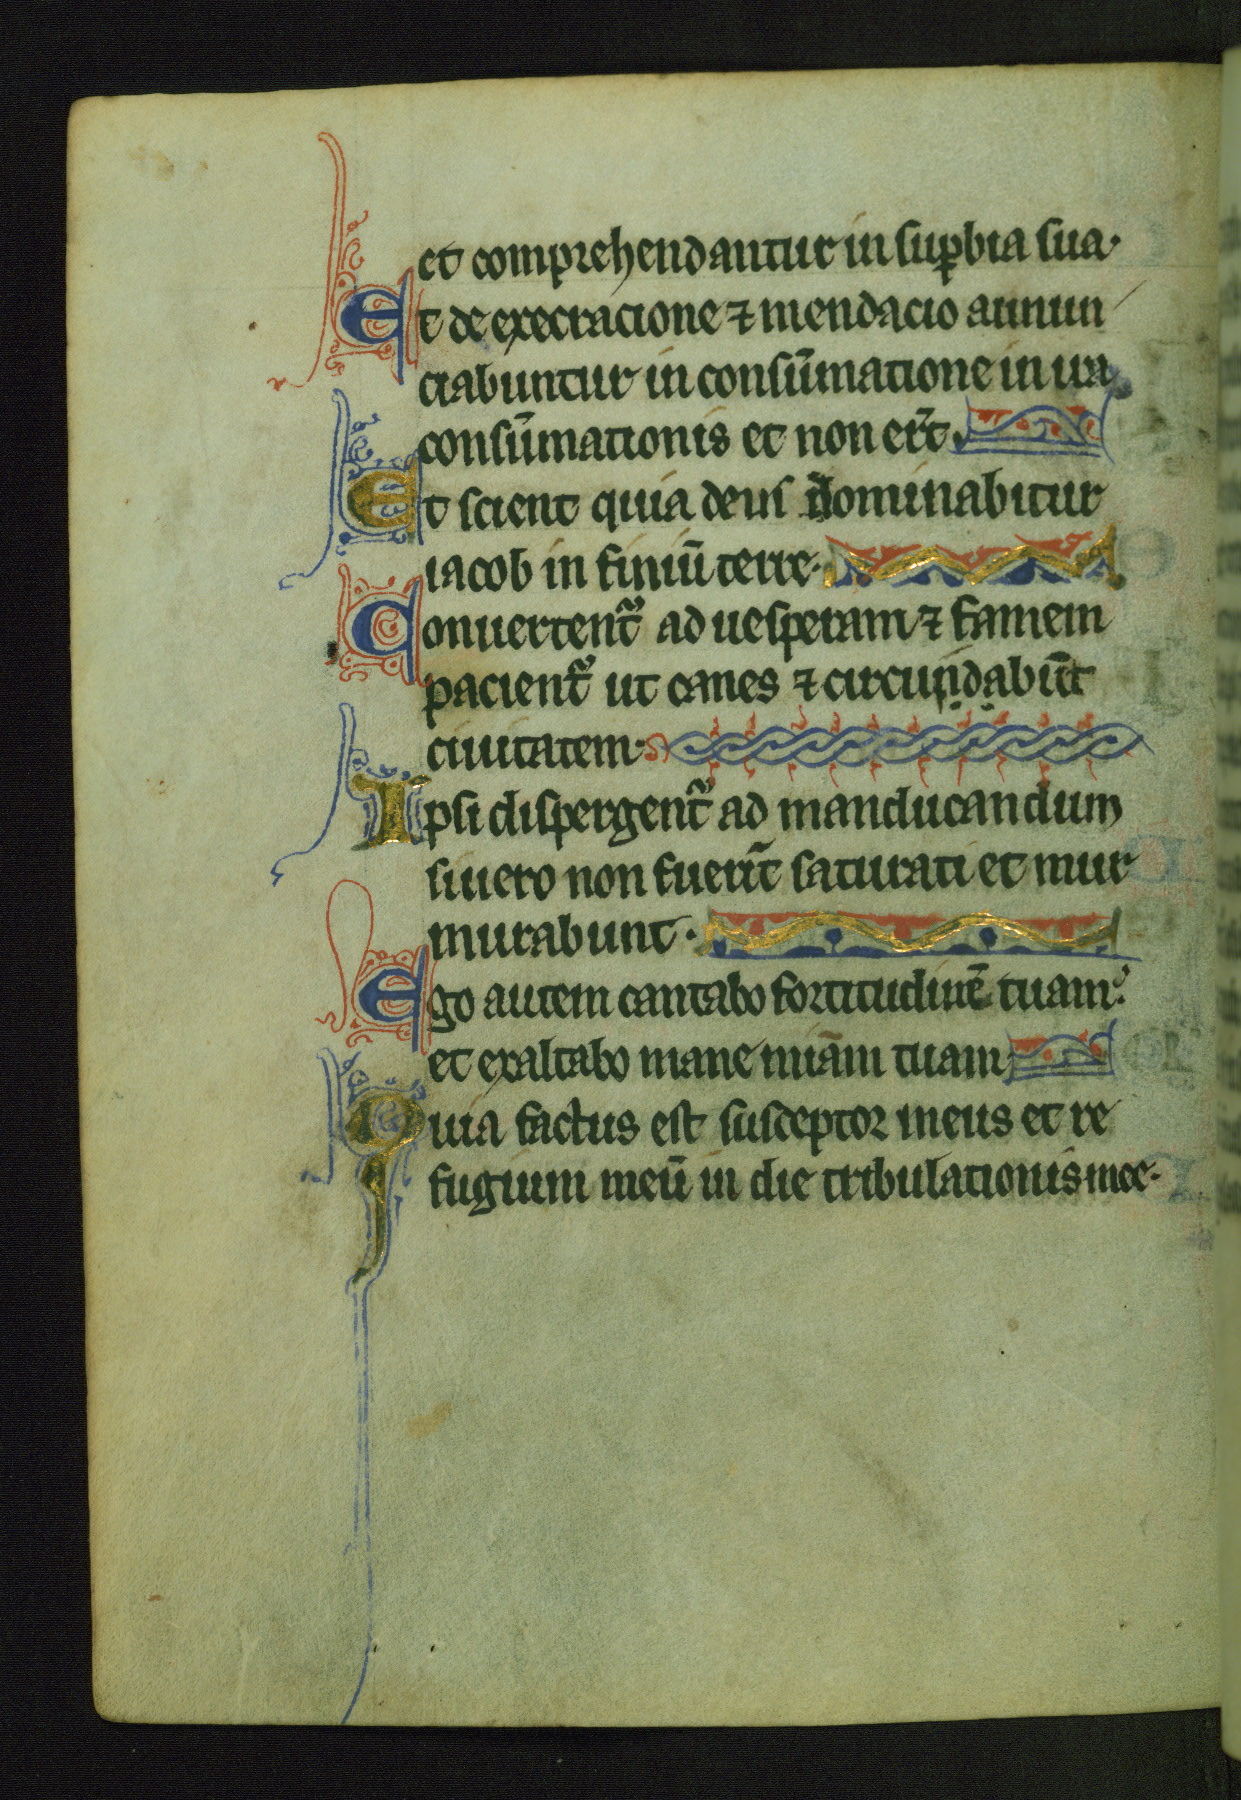 et comprehendantur in supbia sua·
Et de execracione ⁊ mendacio annun
ciabuntur in consūmatione in ira
consūmationis et non er̄t.
Et scient quia deus dominabitur
iacob in finiū terre·
Conuertent᷑ ad uesperam ⁊ famem
pacient᷑ ut canes ⁊ circundabūt
ciuitatem·
Ipsi dispergent᷑ ad manducandum
si uero non fuerīt saturati et mur
murabunt·
Ego autem cantabo fortitudinē tuam:
et exaltabo mane miām tuam
Quia factus est susceptor meus et re
fugium meū in die tribulationis mee·